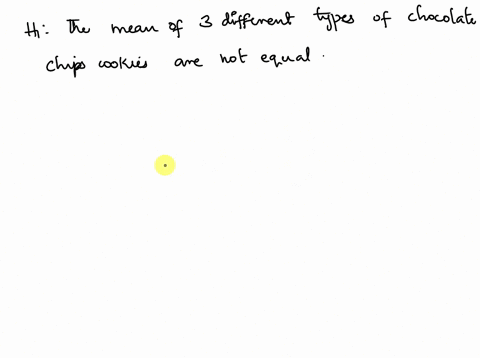 H₁: The mean of 3 different types of chocolate
chips cookies are not equal.